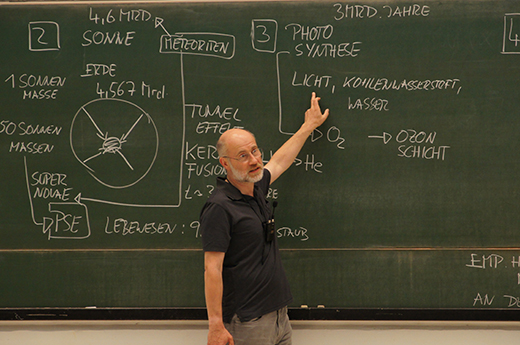 2
4,6 MRD.
SONNE
METEORITEN
1 SONNEN
MASSE
ERDE
4,567 Mrd.
50 SONNEN
MASSEN
SUPER
NOVAE
PSE
TUNNEL
EFFEKT
FUSION
He
LEBEWESEN : 9
STAUB
3
PHOTO
SYNTHESE
3 MRD. JAHRE
LICHT, KOHLENWASSERSTOFF,
WASSER
O2
OZON
SCHICHT
4
EMP. H
AN DE